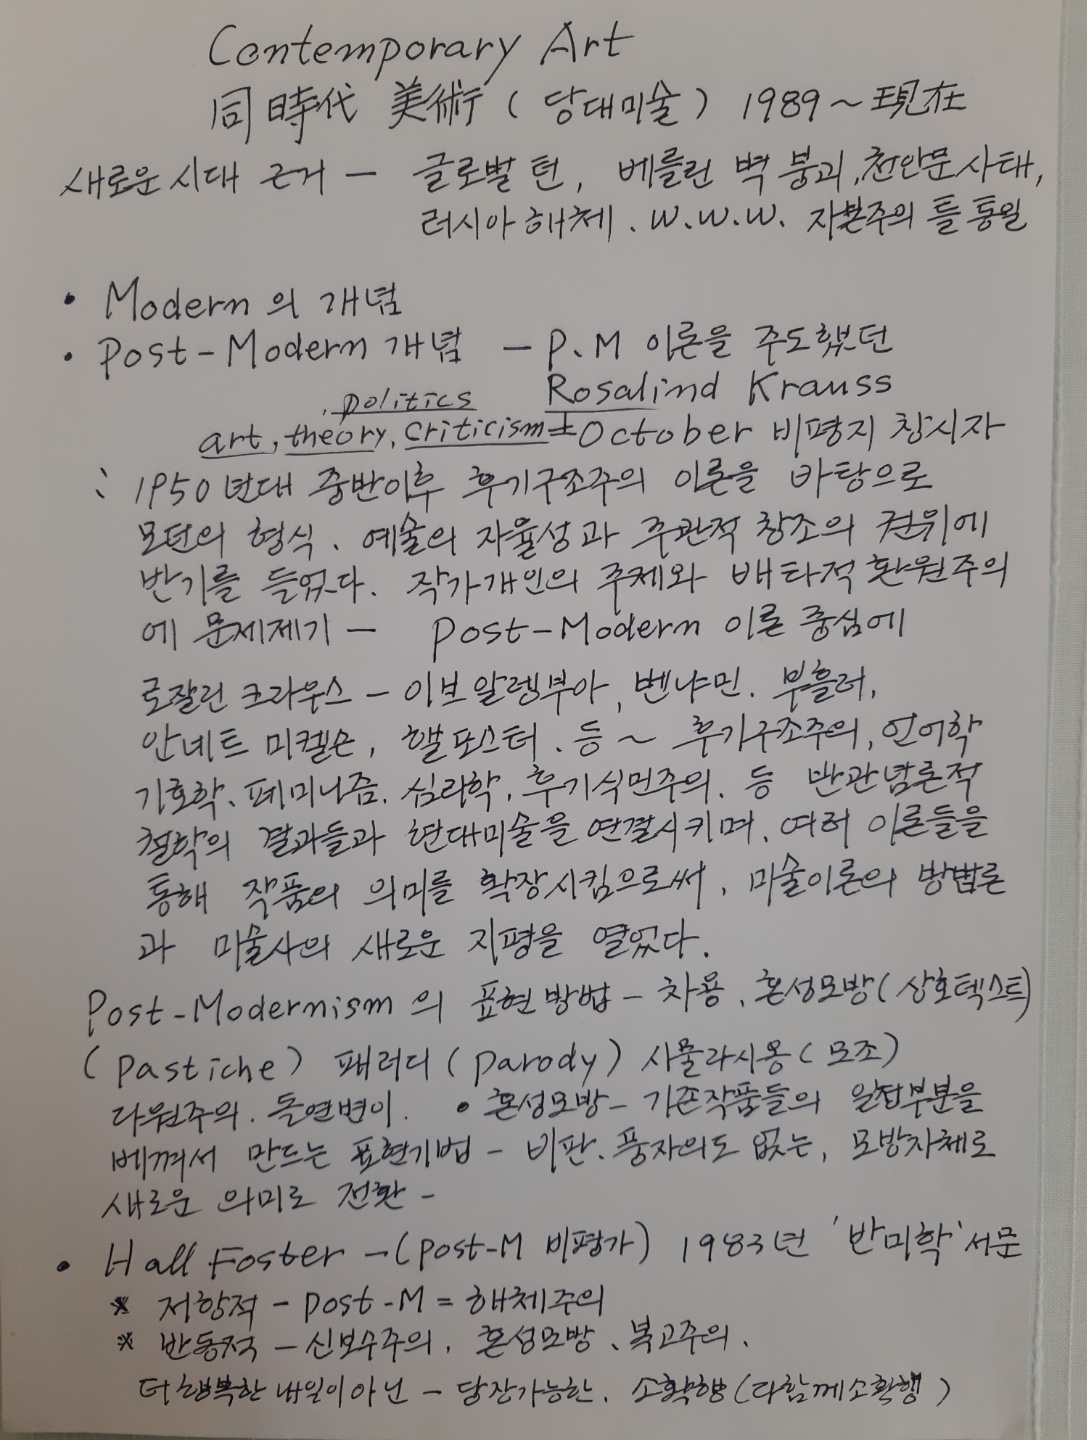 Contemporary Art
同時代 美術 (당대미술) 1989 ~ 現在
새로운 시대 근거 - 글로벌 턴, 베를린 벽 붕괴, 천안문 사태,
러시아 해체. W.W.W. 자본주의 틀 통일
• Modern의 개념
• Post-Modern 개념 - P.M 이론을 주도했던
, politics Rosalind Krauss
art, theory, criticism October 비평지 창시자
: 1950년대 중반이후 후기구조주의 이론을 바탕으로
모던의 형식. 예술의 자율성과 주관적 창조의 권위에
반기를 들었다. 작가개인의 주체와 배타적 환원주의
에 문제제기 - Post-Modern 이론 중심에
로잘린 크라우스 - 이브 알렝부아, 벤냐민. 부흘러,
안네트 미켈슨, 핼포스터. 등 ~ 후기구조주의, 언어학
기호학. 페미니즘. 심리학. 후기식민주의. 등 반관념론적
철학의 결과들과 현대미술을 연결시키며, 여러 이론들을
통해 작품의 의미를 확장시킴으로써, 미술이론의 방법론
과 미술사의 새로운 지평을 열었다.
Post-Modernism의 표현방법 - 차용, 혼성모방(상호텍스트)
(Pastiche) 패러디 (parody) 시뮬라시옹 (모조)
다원주의. 돌연변이. • 혼성모방 - 기존작품들의 일정부분을
베껴서 만드는 표현기법 - 비판. 풍자의도 없는, 모방자체로
새로운 의미로 전환 -
• Hall Foster - (Post-M 비평가) 1983년 '반미학' 서문
* 저항적 - Post-M = 해체주의
* 반동적 - 신보수주의. 혼성모방. 복고주의.
더행복한 내일이 아닌 - 당장가능한. 소확행 (다함께소확행)